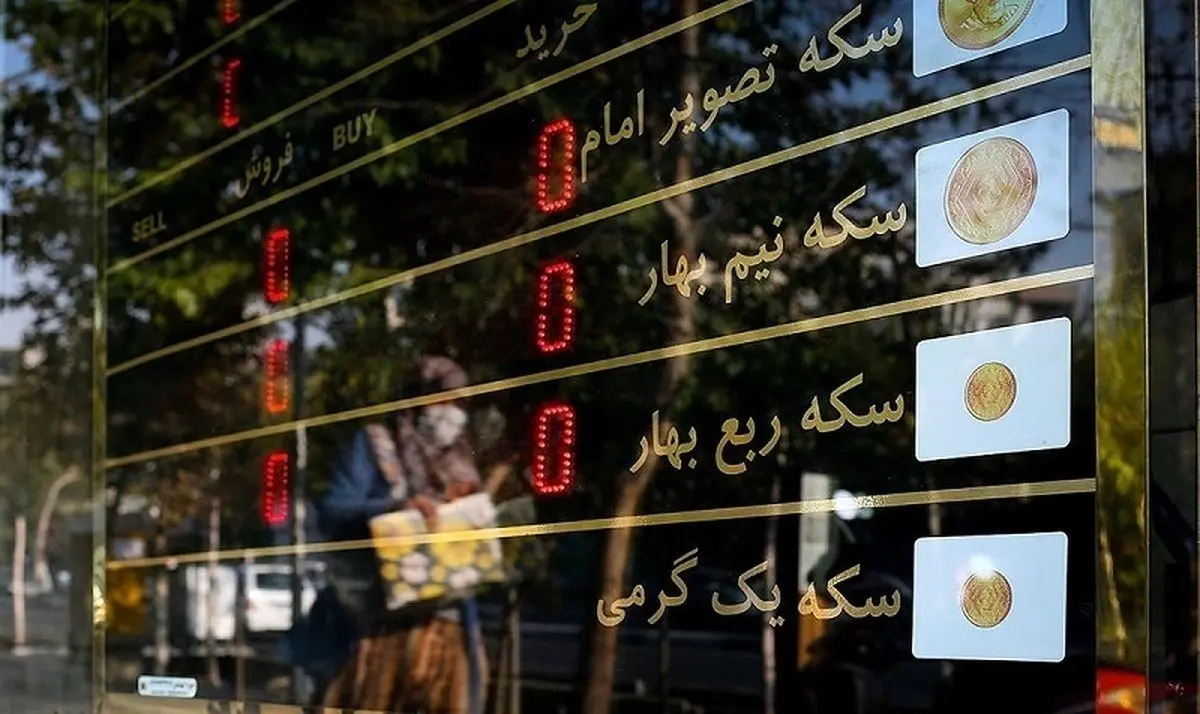 خرید
BUY
فروش
SELL
سکه تصویر امام 0 0
سکه نیم بهار 0 0
سکه ربع بهار 0 0
سکه یک گرمی